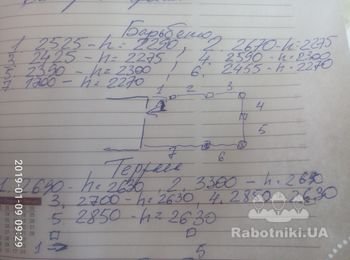 Барбекю
1. 2525 - h = 2290, 2. 2670 - h = 2275
3. 2425 - h = 2275, 4. 2590 - h = 2300
5. 2390 - h = 2300, 6. 2455 - h = 2270
7. 1700 - h = 2270
1 2 3
4
5
7 6
Терраса
1. 2690 - h = 2630, 2. 3300 - h = 2630
3. 2700 - h = 2630, 4. 2850 - 2630
5 2850 - h = 2630
1 5
2019-01-09 09:29
Rabotniki.UA